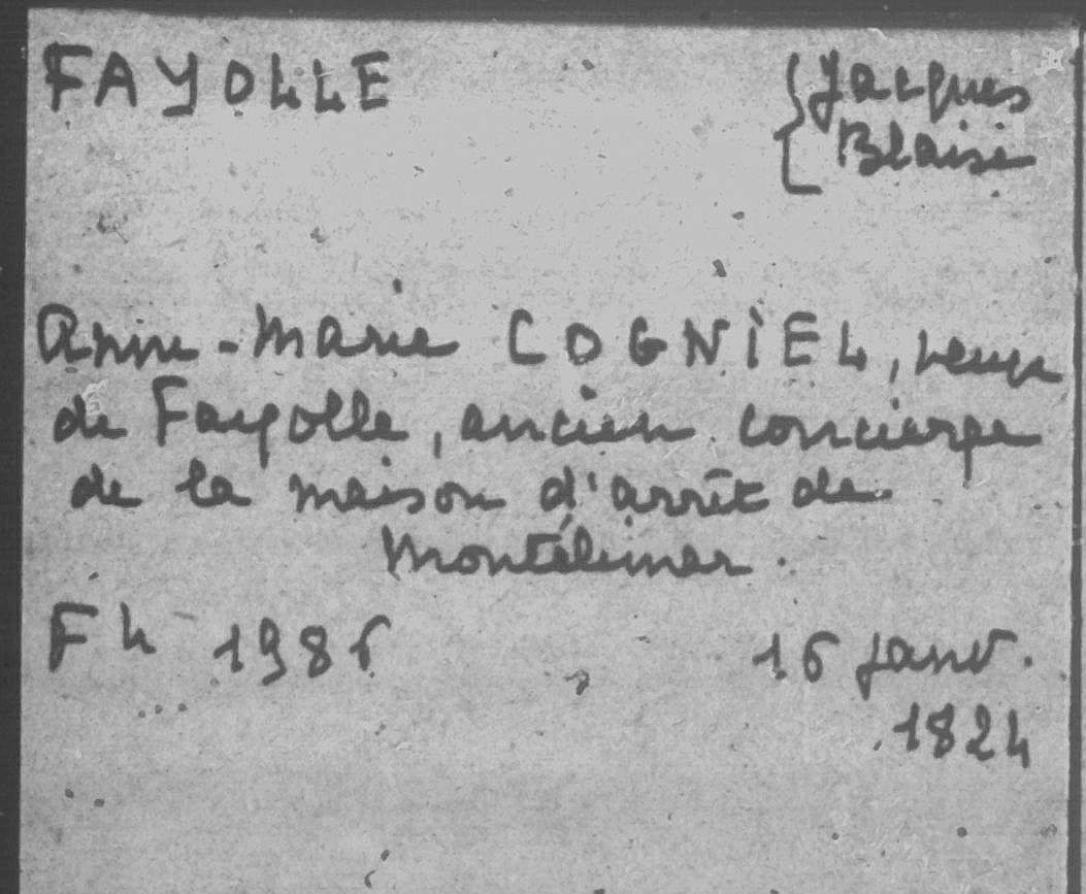 FAYOLLE
{ Jacques
Blaise
Anne-Marie COGNIEL, veuve
de Fayolle, ancien concierge
de la maison d'arrêt de
Montélimar.
F4 1986
16 janv.
1824